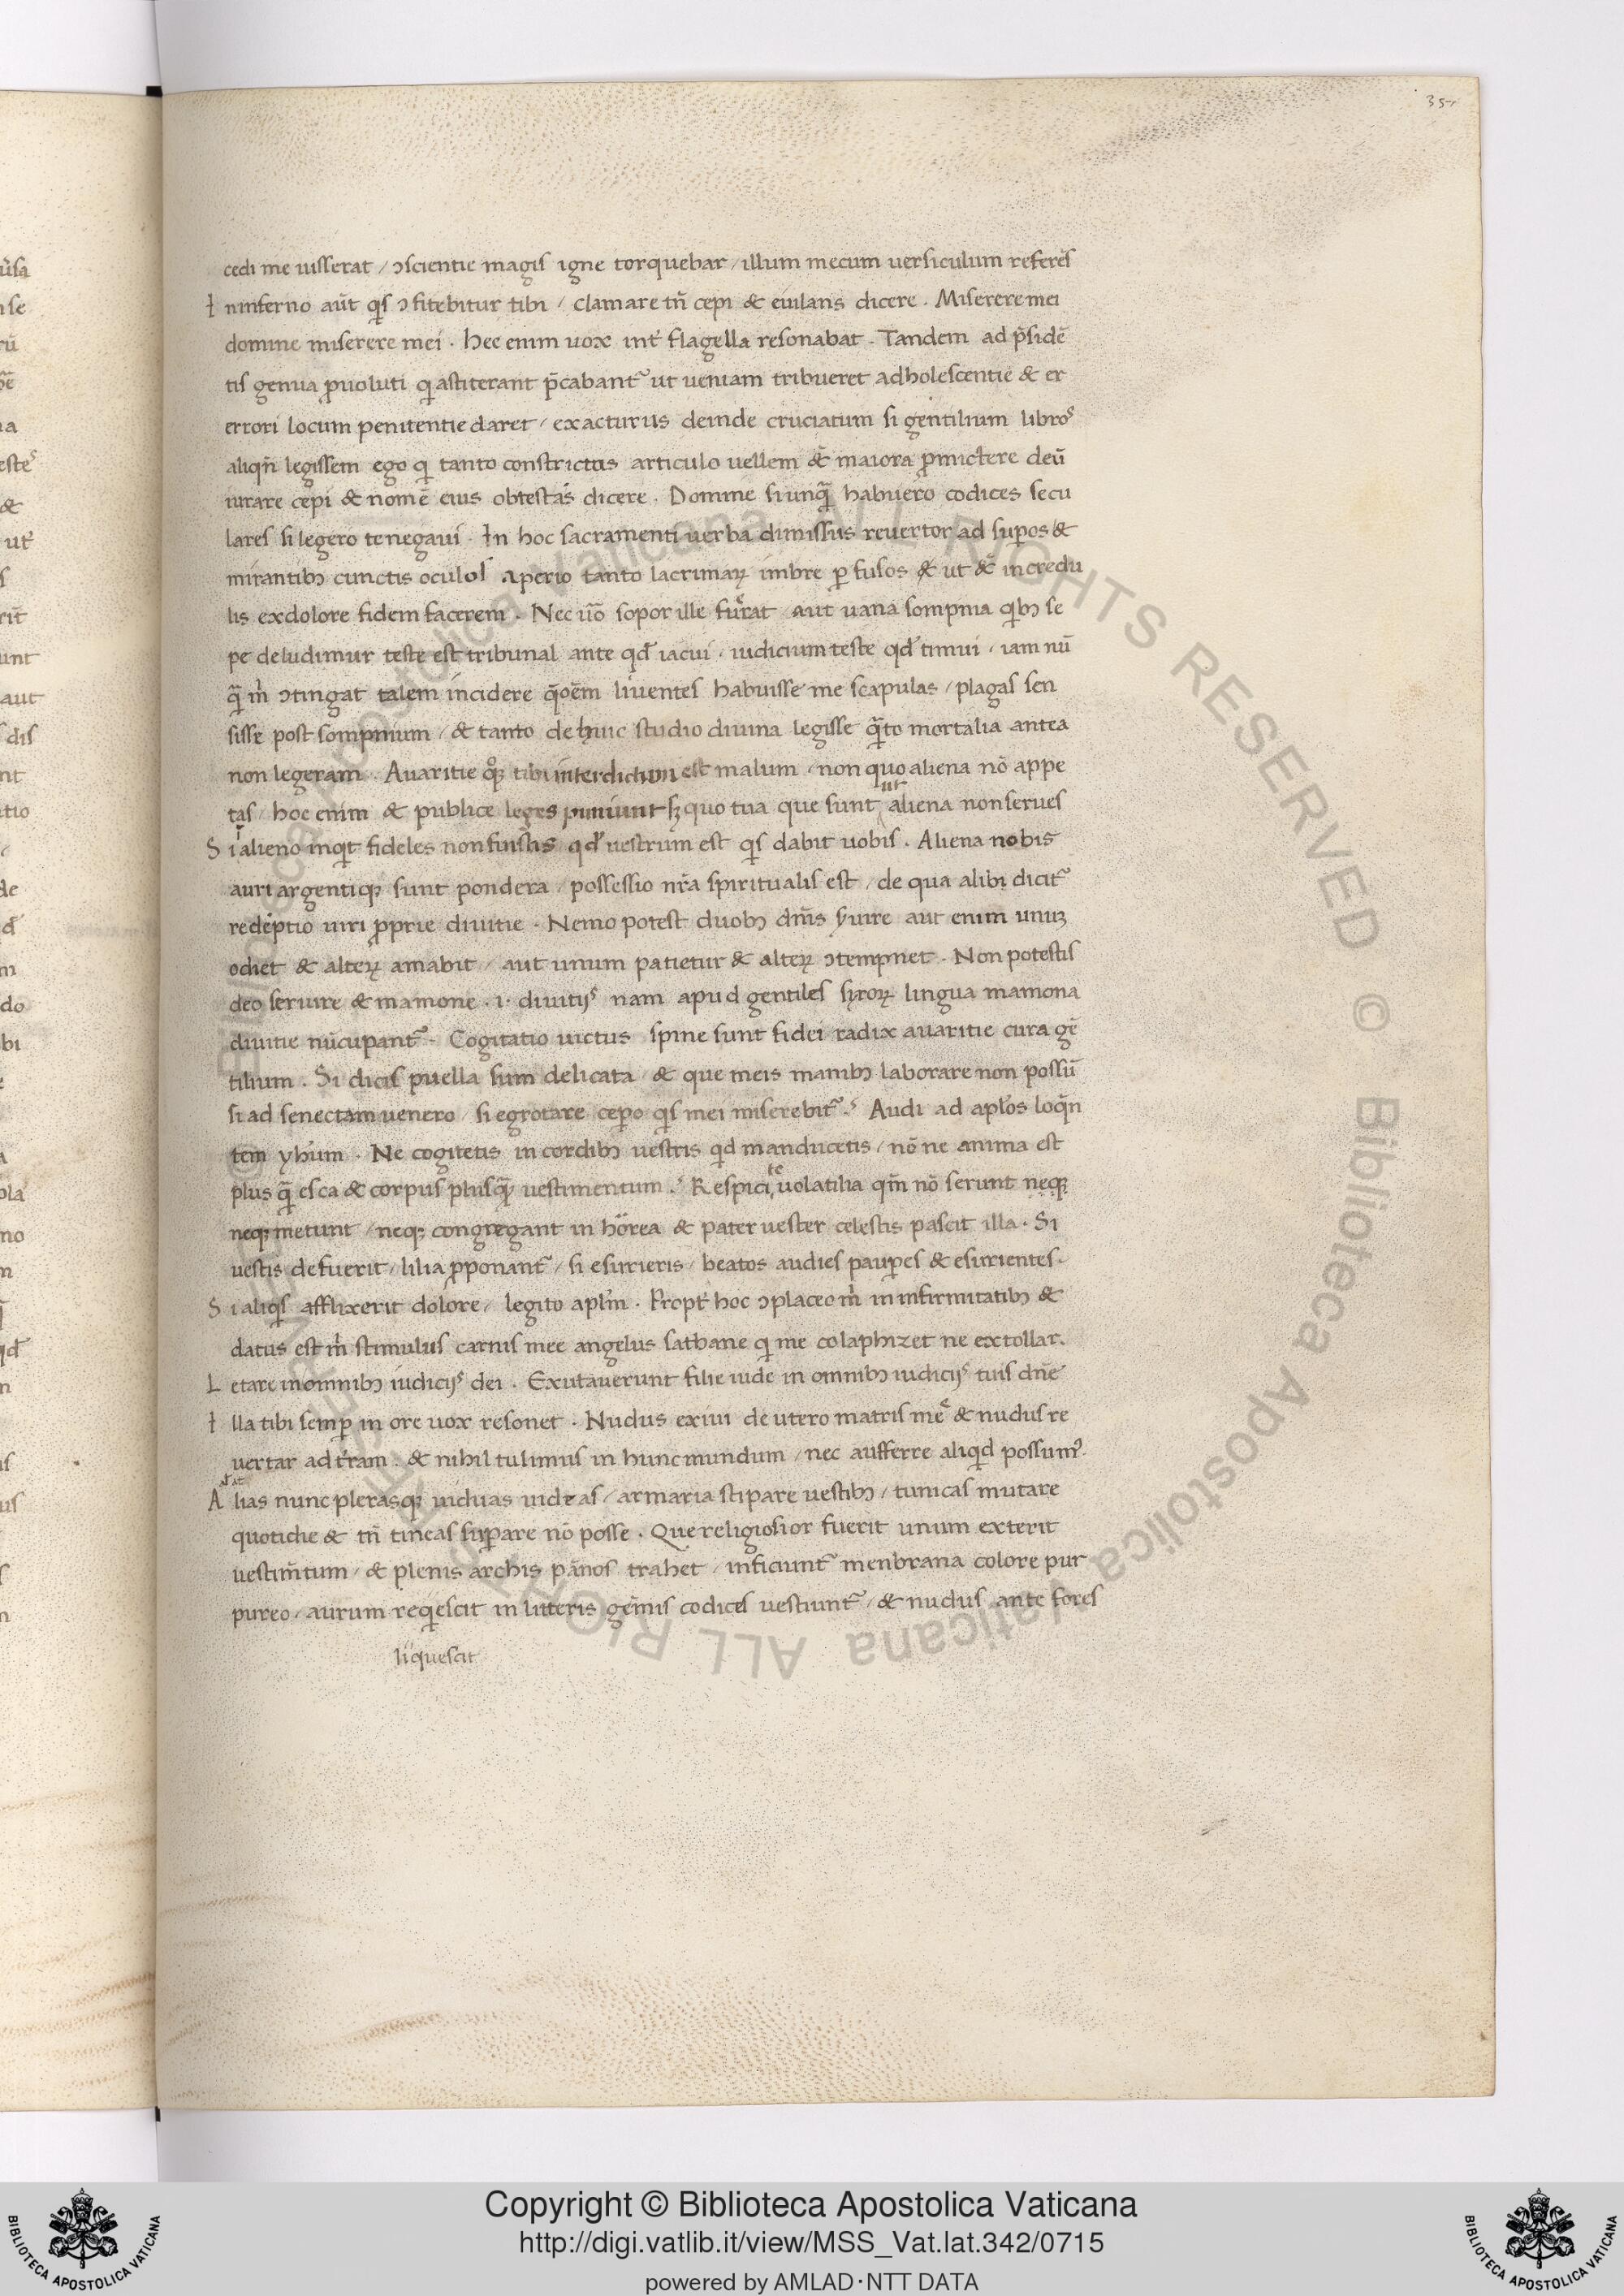 354
cedi me iusserat / ↄscientie magis igne torquebar / illum mecum versiculum referēs
I ninferno aūt qis ↄfitebitur tibi / clamare tn̄ cepi & eiulans dicere . Miserere mei
domine miserere mei . hec enim uox int᷑ flagella resonabat . Tandem ad p̄sidē
tis genua ꝓuoluti qi astiterant p̄cabant᷑ ut ueniam tribueret adholescentie & er
errori locum penitentie daret / exacturus deinde cruciatum si gentilium libros
aliqn̄ legissem ego qi tanto constrictus articulo uellem & maiora ꝓmictere deū
iurare cepi & nomē eius obtestās dicere . Domine si unq̄ habuero codices secu
lares si legero te negaui . In hoc sacramenti uerba dimissus reuertor ad supos &
mirantibꝫ cunctis oculos aperio tanto lacrimaꝝ imbre ꝑfusos & ut & incredu
lis ex dolore fidem facerem . Nec ūo sopor ille fu᷑rat / aut uana sompnia qibꝫ se
pe deludimur teste est tribunal ante qd̄ iacui / iudicium teste qd̄ timui / iam nū
q̄ m̄ ↄtingat talem incidere q̄oēm liuentes habuisse me scapulas / plagas sen
sisse post sompnium / & tanto dehinc studio diuina legisse q̄to mortalia antea
non legeram . Auaritie qoꝫ tibi interdictum est malum / non quo aliena nō appe
tas / hoc enim & publice leges puniunt sꝫ quo tua que sunt ut aliena non serues
S i alieno inqit fideles non fuistis qd̄ uestrum est qis dabit uobis . Aliena nobis
auri argentiqꝫ sunt pondera / possessio nr̄a spiritualis est / de qua alibi dicit᷑
redēptio uiri ꝓprie diuitie . Nemo potest duobꝫ dn̄is s᷑uire aut enim unuꝫ
odiet & alteꝝ amabit / aut unum patietur & alteꝝ ↄtempnet . Non potestis
deo seruire & mamone . i . diuitijs nam apud gentiles syroꝝ lingua mamona
diuitie nūcupant᷑ . Cogitatio uictus spine sunt fidei radix auaritie cura gē
tilium . Si dicis puella sum delicata & que meis manibꝫ laborare non possū
si ad senectam uenero / si egrotare cepo qis mei miserebit᷑ ? Audi ad aplos loqn̄
tem yhum . Ne cogitetis in cordibꝫ uestris qid manducetis / nō ne anima est
plus q̄ esca & corpus plusq̄ uestimentum ? Respicite uolatilia qm̄ nō serunt neqꝫ
neqꝫ metunt / neqꝫ congregant in horrea & pater uester celestis pascit illa . Si
uestis defuerit / lilia ꝓponant᷑ / si esurieris / beatos audies pauꝑes & esurientes .
S i aliqis afflixerit dolore / legito aplm . Propt᷑ hoc ↄplaceo m̄ in infirmitatibꝫ &
datus est m̄ stimulus carnis mee angelus sathane qi me colaphizet ne extollar .
L etare in omnibꝫ iudicijs dei . Exutauerunt filie iude in omnibꝫ iudicijs tuis dn̄e
I lla tibi semꝑ in ore uox resonet . Nudus exiui de utero matris mee & nudus re
uertar ad t᷑ram . & nihil tulimus in hunc mundum / nec aufferre aliqid possum᷒ .
A lias nunc plerasqꝫ uiduas uideas / armaria stipare uestibꝫ / tunicas mutare
quotidie & tn̄ tineas suꝑare nō posse . Que religiosior fuerit unum exterit
uestim̄tum / & plenis archis pānos trahet / inficiunt᷑ menbrana colore pur
pureo / aurum reqiescit in litteris gēmis codices uestiunt᷑ / & nudus ante fores
liquescit
© Biblioteca Apostolica Vaticana ALL RIGHTS RESERVED © Biblioteca Apostolica Vaticana ALL RIGHTS RESERVED
Copyright © Biblioteca Apostolica Vaticana
http://digi.vatlib.it/view/MSS_Vat.lat.342/0715
powered by AMLAD·NTT DATA
BIBLIOTECA APOSTOLICA VATICANA
BIBLIOTECA APOSTOLICA VATICANA